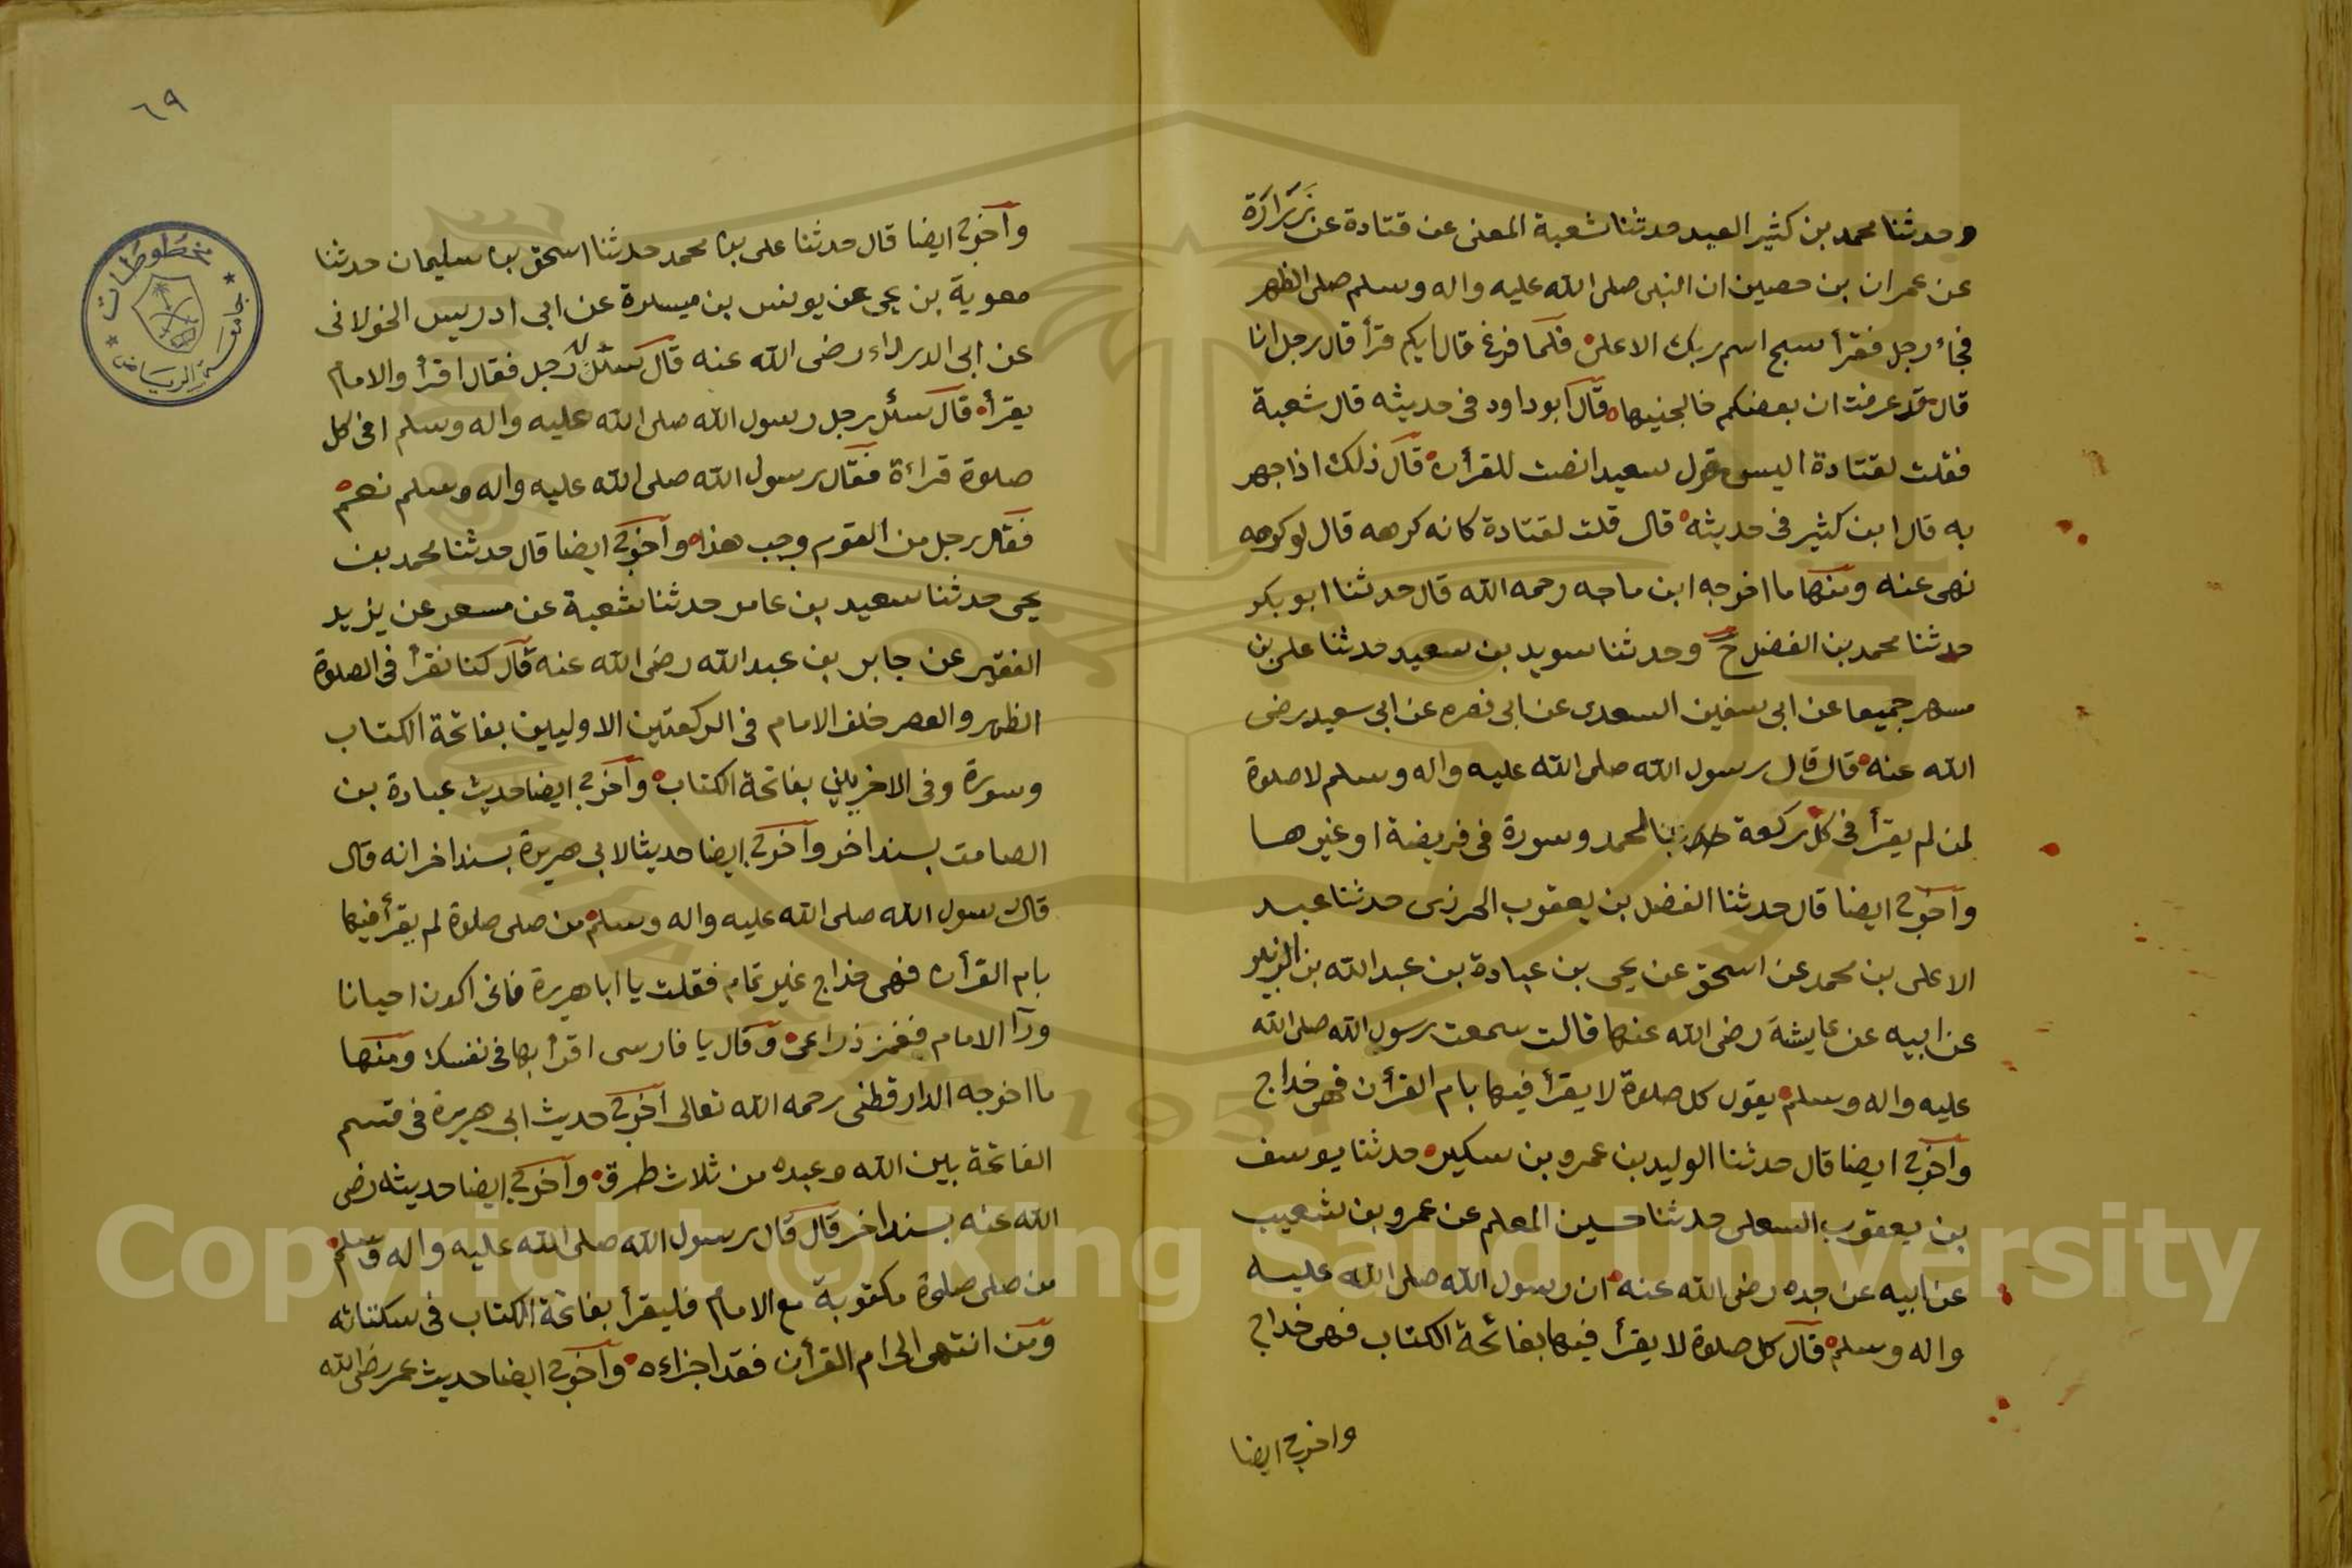 وحدثنا محمد بن كثير العبد حدثنا شعبة المعنى عن قتادة عن زرارة
عن عمران بن حصين ان النبى صلى الله عليه واله وسلم صلى الظهر
فجاء رجل فقرأ سبح اسم ربك الاعلى فلما فرغ قال ايكم قرأ قال رجل انا
قال قد عرفت ان بعضكم خالجنيها قال ابو داود فى حديثه قال شعبة
فقلت لقتادة اليس قول سعيد انصت للقرأن قال ذلك اذا جهر
به قال ابن كثير فى حديثه قال قلت لقتادة كانه كرهه قال لو كرهه
نهى عنه ومنها ما اخرجه ابن ماجه رحمه الله قال حدثنا ابو بكر
حدثنا محمد بن الفضل ح وحدثنا سويد بن سعيد حدثنا على بن
مسهر جميعا عن ابى سفين السعدى عن ابى نضره عن ابى سعيد رضى
الله عنه قال قال رسول الله صلى الله عليه واله وسلم لا صلوة
لمن لم يقرأ فى كل ركعة بالحمد وسورة فى فريضة او غيرها
واخرج ايضا قال حدثنا الفضل بن يعقوب الحرزى حدثنا عبد
الاعلى بن محمد عن اسحق عن يحى بن عبادة بن عبد الله بن الزبير
عن ابيه عن عايشة رضى الله عنها قالت سمعت رسول الله صلى الله
عليه واله وسلم يقول كل صلوة لا يقرأ فيها بام القرأن فهى خداج
واخرج ايضا قال حدثنا الوليد بن عمرو بن سكين حدثنا يوسف
بن يعقوب السعلى حدثنا حسين المعلم عن عمرو بن شعيب
عن ابيه عن جده رضى الله عنه ان رسول الله صلى الله عليه
واله وسلم قال كل صلوة لا يقرأ فيها بفاتحة الكتاب فهى خداج
واخرج ايضا
٦٩
واخرج ايضا قال حدثنا على بن محمد حدثنا اسحق بن سليمان حدثنا
معوية بن يحى عن يونس بن ميسرة عن ابى ادريس الخولانى
عن ابى الدرداء رضى الله عنه قال سئل رجل فقال اقرأ والامام
يقرأ قال سئل رجل رسول الله صلى الله عليه واله وسلم افى كل
صلوة قراءة فقال رسول الله صلى الله عليه واله وسلم نعم
فقال رجل من القوم وجب هذا واخرج ايضا قال حدثنا محمد بن
يحى حدثنا سعيد بن عامر حدثنا شعبة عن مسعر عن يزيد
الفقير عن جابر بن عبد الله رضى الله عنه قال كنا نقرأ فى الصلوة
الظهر والعصر خلف الامام فى الركعتين الاوليين بفاتحة الكتاب
وسورة وفى الاخريين بفاتحة الكتاب واخرج ايضا حديث عبادة بن
الصامت بسند اخر واخرج ايضا حديثا لابى هريرة بسند اخر انه قال
قال رسول الله صلى الله عليه واله وسلم من صلى صلوة لم يقرأ فيها
بام القرأن فهى خداج غير تمام فقلت يا ابا هريرة فانى اكون احيانا
ورآ الامام فغمز ذراعى وقال يا فارسى اقرأ بها فى نفسك ومنها
ما اخرجه الدارقطنى رحمه الله تعالى اخرج حديث ابى هريرة فى قسم
الفاتحة بين الله وعبده من ثلاث طرق واخرج ايضا حديثه رضى
الله عنه بسند اخر قال قال رسول الله صلى الله عليه واله وسلم
من صلى صلوة مكتوبة مع الامام فليقرأ بفاتحة الكتاب فى سكتاته
ومن انتهى الى ام القرأن فقد اجزاءه واخرج ايضا حديث عمر رضى الله
مخطوطات
جامعة الرياض
Copyright © King Saud University
1957